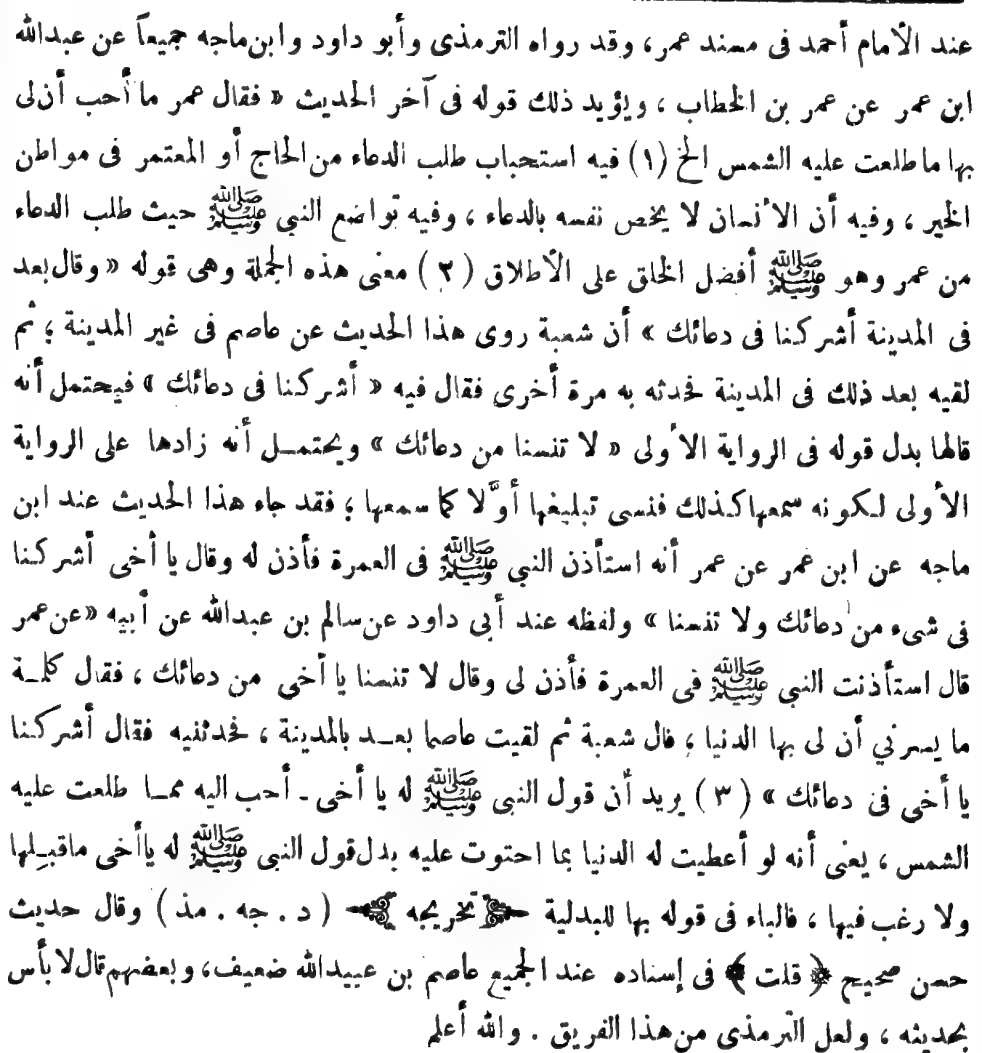 عند الأمام أحمد فى مسند عمر، وقد رواه الترمذى وأبو داود وابن ماجه جميعاً عن عبدالله
ابن عمر عن عمر بن الخطاب ، ويؤيد ذلك قوله فى آخر الحديث « فقال عمر ما أحب أن لى
بها ما طلعت عليه الشمس الخ (١) فيه استحباب طلب الدعاء من الحاج أو المعتمر فى مواطن
الخير ، وفيه أن الأنسان لا يخص نفسه بالدعاء ، وفيه تواضع النبي ﷺ حيث طلب الدعاء
من عمر وهو ﷺ أفضل الخلق على الأطلاق (٢) معنى هذه الجملة وهى قوله « وقال بعد
فى المدينة أشركنا فى دعائك » أن شعبة روى هذا الحديث عن عاصم فى غير المدينة ؛ ثم
لقيه بعد ذلك فى المدينة فحدثه به مرة أخرى فقال فيه « أشركنا فى دعائك » فيحتمل أنه
قالها بدل قوله فى الرواية الأولى « لا تنسنا من دعائك » ويحتمــل أنه زادها على الرواية
الأولى لكونه سمعها كذلك فنسى تبليغها أوَّلا كما سمعها ؛ فقد جاء هذا الحديث عند ابن
ماجه عن ابن عمر عن عمر أنه استأذن النبي ﷺ فى العمرة فأذن له وقال يا أخى أشركنا
فى شىء من دعائك ولا تنسنا » ولفظه عند أبى داود عن سالم بن عبدالله عن أبيه «عن عمر
قال استأذنت النبي ﷺ فى العمرة فأذن لى وقال لا تنسنا يا أخى من دعائك ، فقال كلمــة
ما يسرني أن لى بها الدنيا ؛ قال شعبة ثم لقيت عاصما بعــد بالمدينة ، فحدثنيه فقال أشركنا
يا أخى فى دعائك » (٣) يريد أن قول النبى ﷺ له يا أخى ـ أحب اليه ممــا طلعت عليه
الشمس ، يعنى أنه لو أعطيت له الدنيا بما احتوت عليه بدل قول النبى ﷺ له يا أخى ما قبـِلها
ولا رغب فيها ، فالباء فى قوله بها للبدلية تخريجه ( د . جه . مذ ) وقال حديث
حسن صحيح ﴿ قلت ﴾ فى إسناده عند الجميع عاصم بن عبيدالله ضعيف، وبعضهم قال لا بأس
بحديثه ، ولعل الترمذى من هذا الفريق . والله أعلم